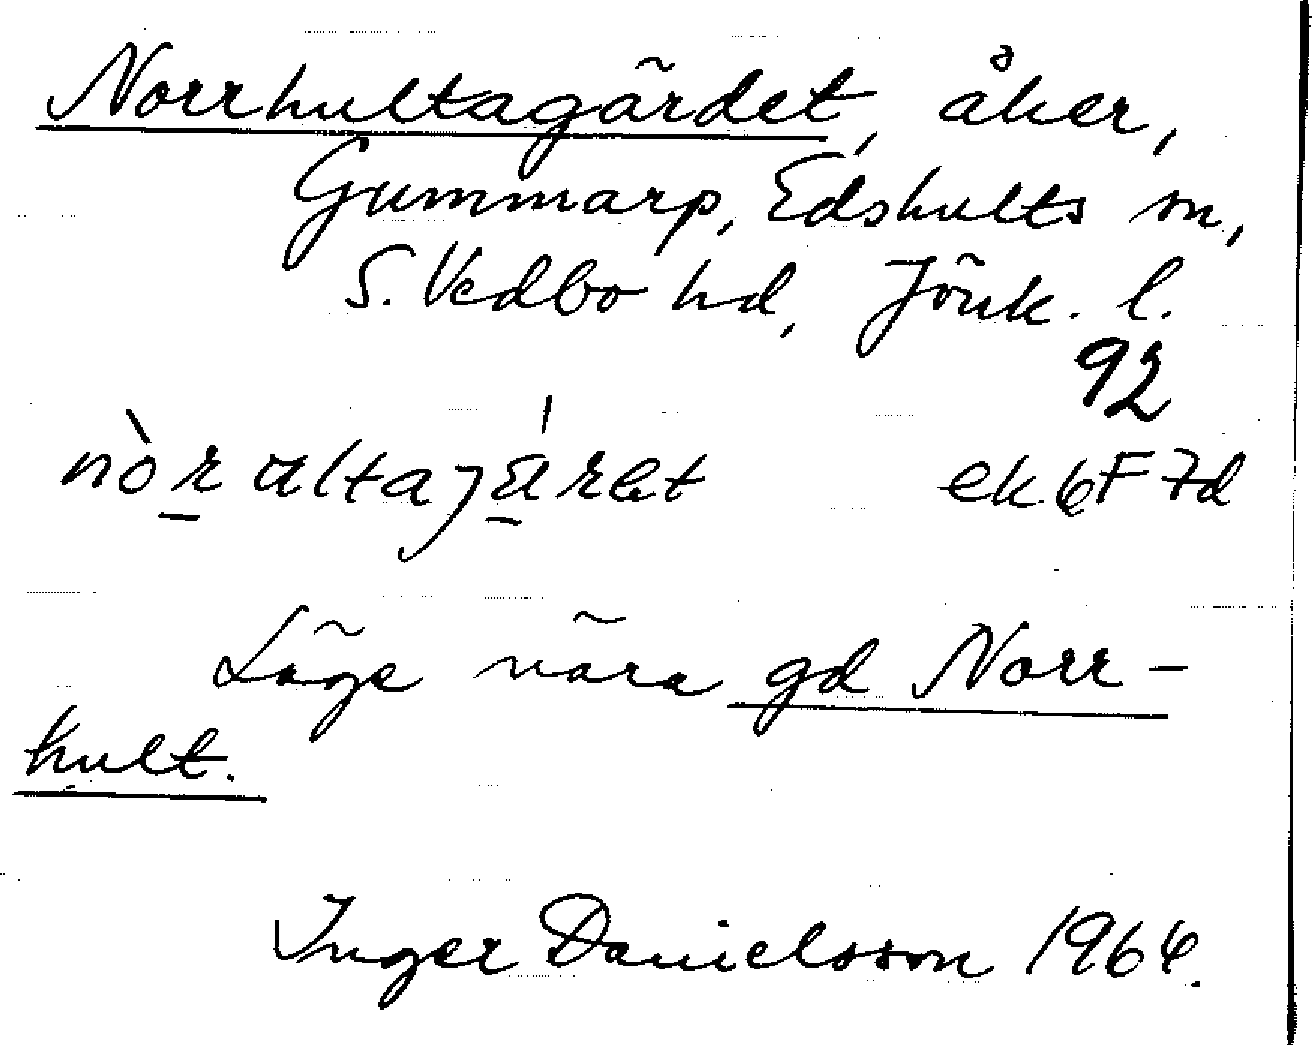 Norrhultagärdet, åker,
Gummarp, Edshults sn,
S. Vedbo hd, Jönk. l.
92
nòr ultajäret ek 6F 7d
Läge nära gd Norr-
hult.
Inger Danielsson 1964.